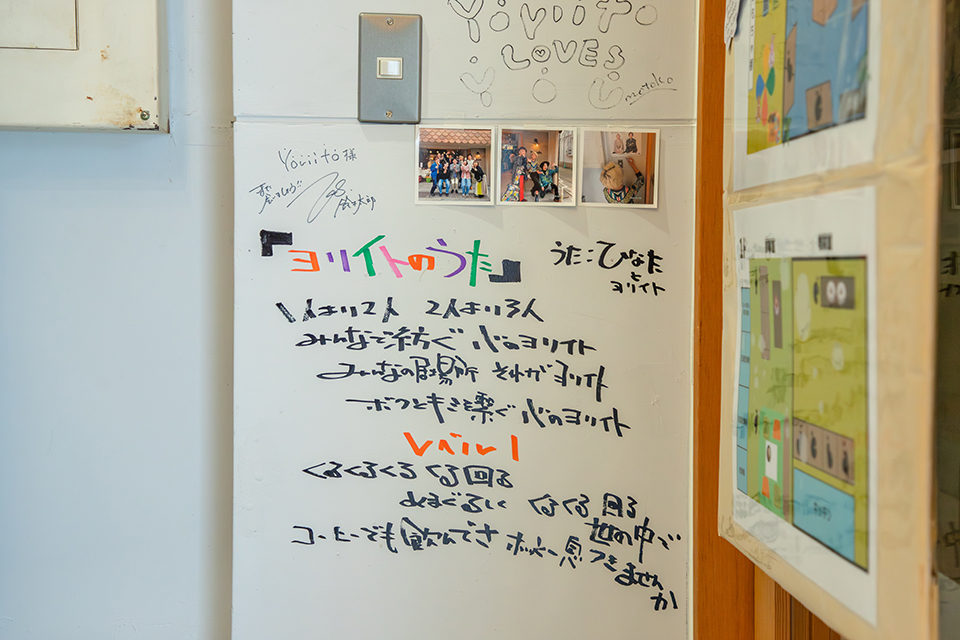 Yoriito
LOVES
Yoriito様
『ヨリイトのうた』
うた:ひなた
と
ヨリイト
1人より2人 2人より3人
みんなで紡ぐ 心のヨリイト
みんなの居場所 それがヨリイト
ボクとキミを繋ぐ 心のヨリイト
レベル1
くるくるくるくる回る
めまぐるしく くるくる回る
世の中で
コーヒーでも飲んでさ ホッと一息つきません
か